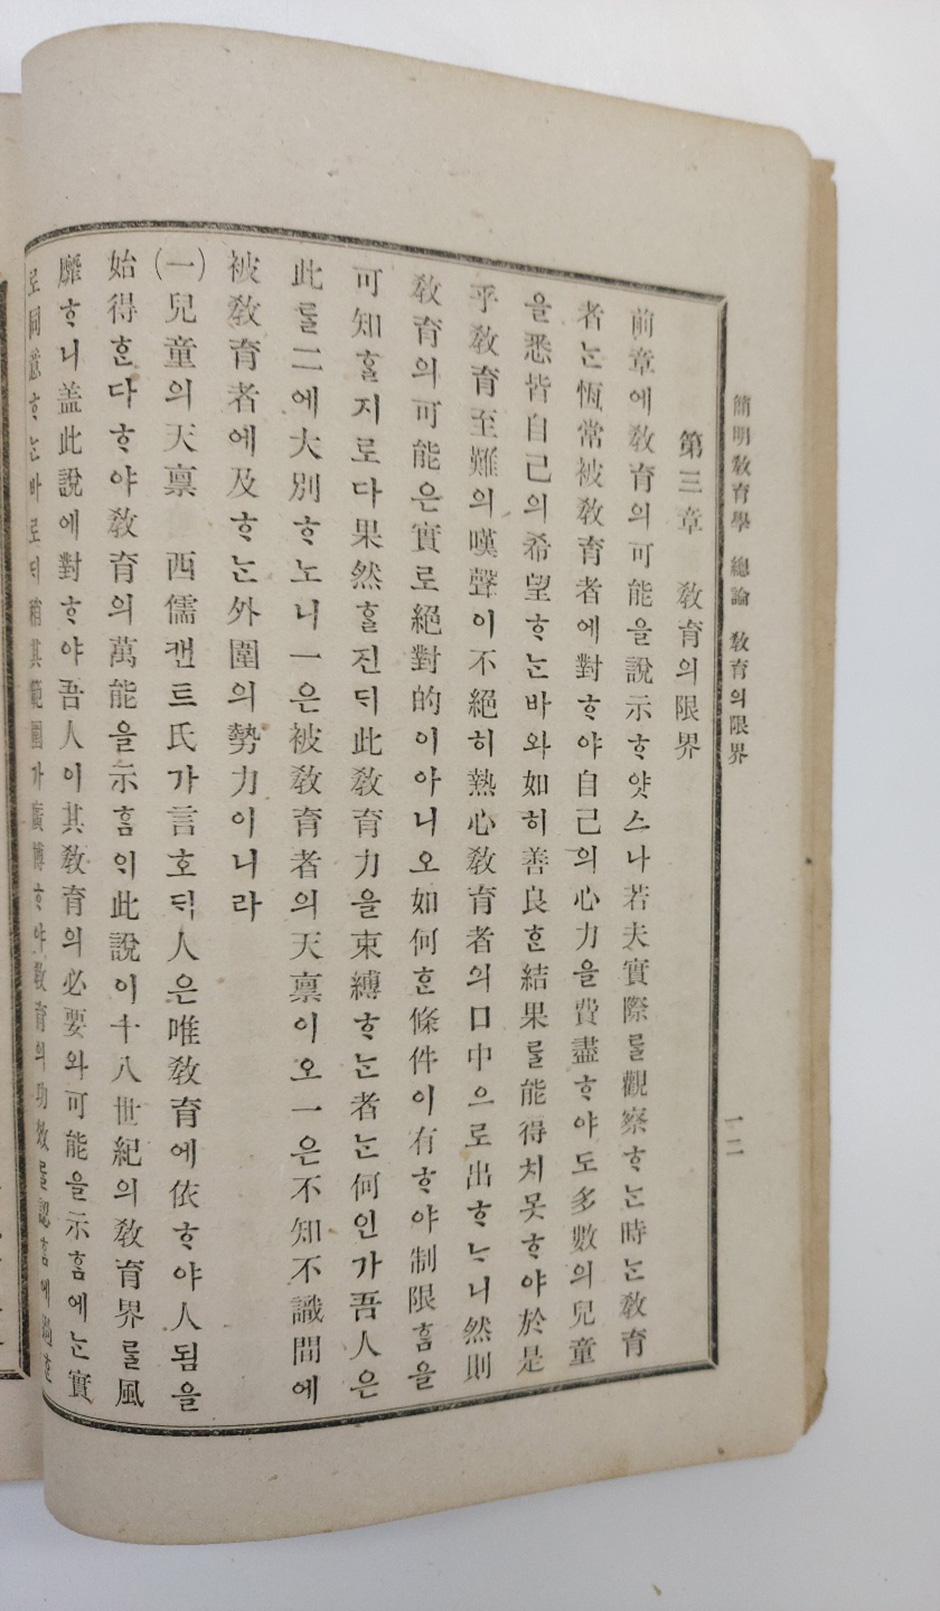 簡明敎育學 總論 敎育의限界
一二
第三章 敎育의限界
前章에敎育의可能을說示ᄒᆞ얏스나若夫實際를觀察ᄒᆞᄂᆞᆫ時ᄂᆞᆫ敎育
者ᄂᆞᆫ恆常被敎育者에對ᄒᆞ야自己의心力을費盡ᄒᆞ야도多數의兒童
을悉皆自己의希望ᄒᆞᄂᆞᆫ바와如히善良ᄒᆞᆫ結果를能得치못ᄒᆞ야於是
乎敎育至難의嘆聲이不絕히熱心敎育者의口中으로出ᄒᆞᄂᆞ니然則
敎育의可能은實로絕對的이아니오如何ᄒᆞᆫ條件이有ᄒᆞ야制限ᄒᆞᆷ을
可知ᄒᆞᆯ지로다果然ᄒᆞᆯ진ᄃᆡ此敎育力을束縛ᄒᆞᄂᆞᆫ者ᄂᆞᆫ何인가吾人은
此를二에大別ᄒᆞ노니一은被敎育者의天禀이오一은不知不識間에
被敎育者에及ᄒᆞᄂᆞᆫ外圍의勢力이니라
(一)兒童의天禀 西儒캔트氏가言호ᄃᆡ人은唯敎育에依ᄒᆞ야人됨을
始得ᄒᆞᆫ다ᄒᆞ야敎育의萬能을示ᄒᆞᆷᄋᆡ此說이十八世紀의敎育界를風
靡ᄒᆞ니盖此說에對ᄒᆞ야吾人이其敎育의必要와可能을示ᄒᆞᆷ에ᄂᆞᆫ實
로同意ᄒᆞᄂᆞᆫ바로ᄃᆡ稍其範圍가廣博ᄒᆞ야敎育의功效를認ᄒᆞᆷ에過